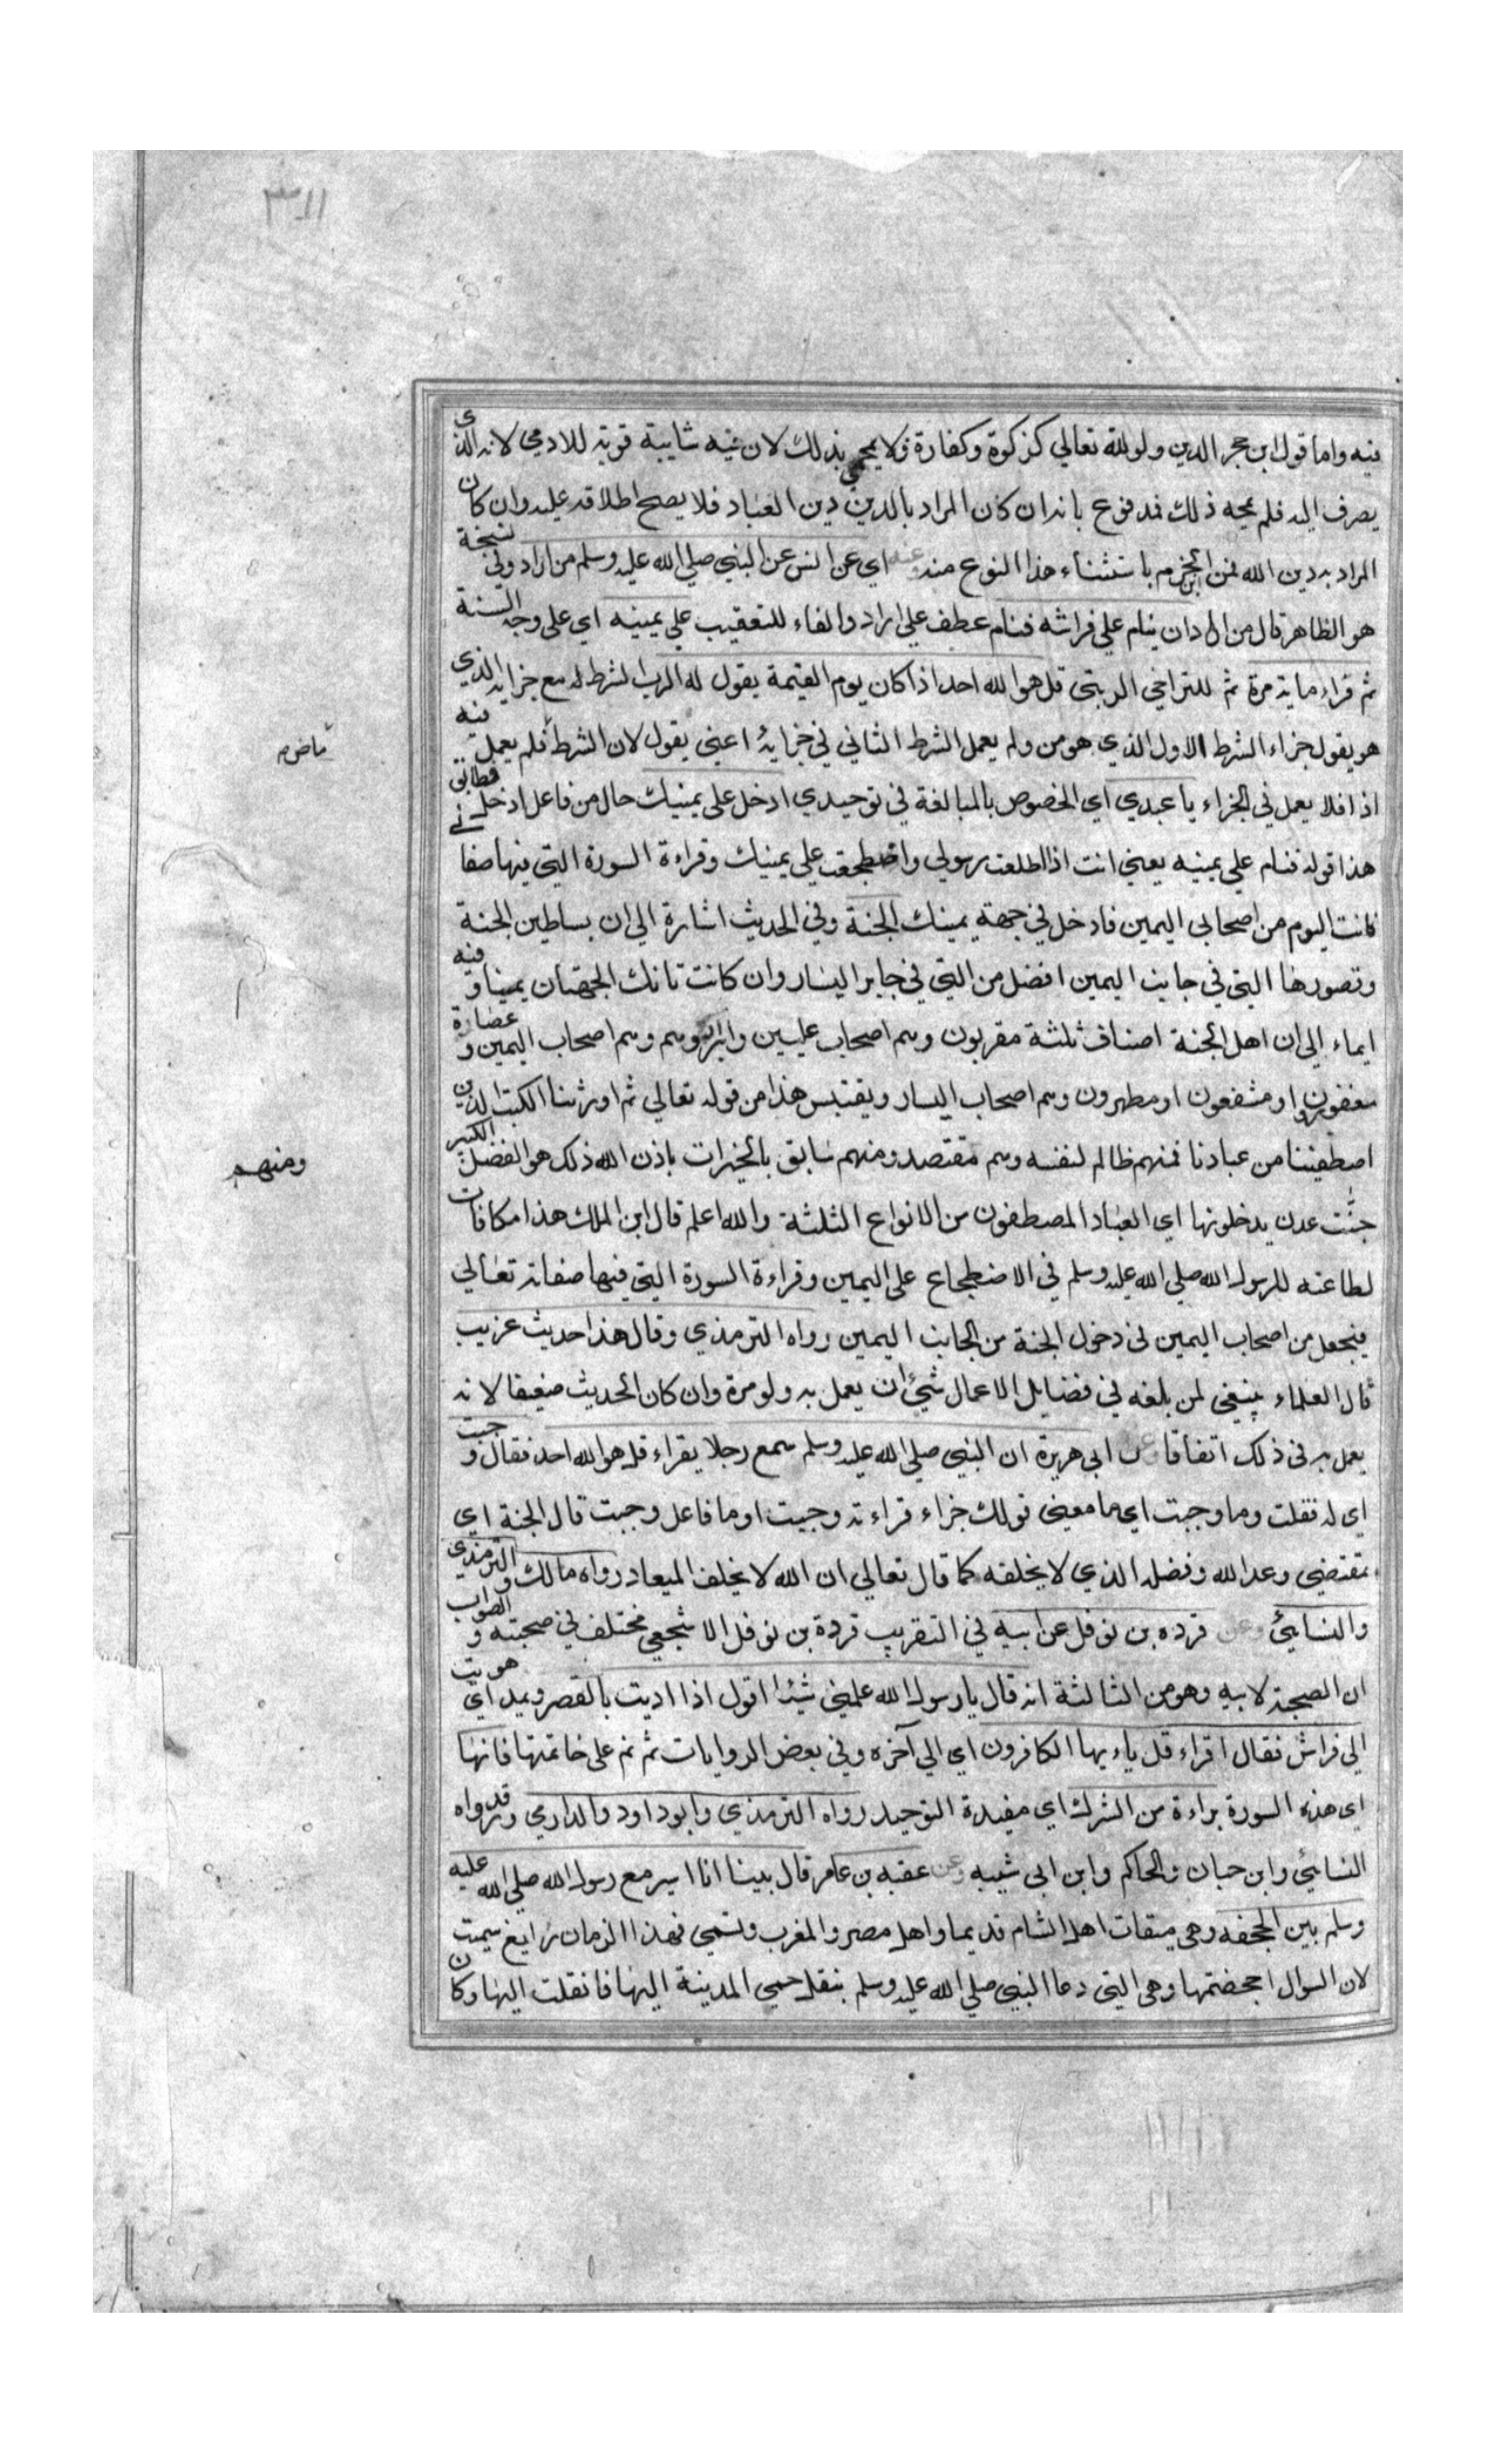 ٣١١
فيه واما قول ابن حجر الدين ولو لله تعالي كزكوة وكفارة فلا يمحي بذلك لان فيه شايبة قوية للادمي لانه الذي
يصرف اليه فلم يمحه ذلك فمدفوع بانه ان كان المراد بالدين دين العباد فلا يصح اطلاقه عليه وان كان
المراد به دين الله فمن اين الجزم باستثناء هذا النوع منه وعنه اي عن انس عن النبي صلي الله عليه وسلم من اراد وفي نسخة
هو الظاهر قال من اراد ان ينام علي فراشه فنام عطف علي اراد والفاء للتعقيب علي يمينه اي علي وجه السنة
ثم قراء ماية مرة ثم للتراخي الرتبي قل هو الله احد اذا كان يوم القيمة يقول له الرب لشرط له مع جزايه الذي
هو يقول جزاء الشرط الاول الذي هو من ولم يعمل الشرط الثاني في جزايه اعني يقول لان الشرط فلم يعمل فيه
ماض م
اذا فلا يعمل في الجزاء يا عبدي اي الخصوص بالمبالغة في توحيدي ادخل علي يمينك حال من فاعل ادخل فطابق
هذا قوله فنام علي يمينه يعني انت اذا اطلعت رسولي واضطجعت علي يمينك وقراءة السورة التي فيها صفاتي
فانت اليوم من اصحابي اليمين فادخل في جهة يمينك الجنة وفي الحديث اشارة الي ان بساطين الجنة
وقصورها التي في جانب اليمين افضل من التي في جابر اليسار وان كانت تانك الجهتان يمينا وفيه
ايماء الي ان اهل الجنة اصناف ثلثة مقربون وهم اصحاب عليين وابرار وهم وهم اصحاب اليمين وعضارة
مغفورون او مشفعون او مطهرون وهم اصحاب اليسار ويقتبس هذا من قوله تعالي ثم اورثنا الكتب الذين
اصطفيننا من عبادنا فمنهم ظالم لنفسه وهم مقتصد ومنهم سابق بالخيرات باذن الله ذلك هو الفضل الكبير
ومنهم
جنّت عدن يدخلونها اي العباد المصطفون من الانواع الثلثة والله اعلم قال ابن الملك هذا مكافات
لطاعته للرسول الله صلي الله عليه وسلم في الاضطجاع علي اليمين وقراءة السورة التي فيها صفاته تعالي
فيجعل من اصحاب اليمين في دخول الجنة من الجانب اليمين رواه الترمذي وقال هذا حديث غريب
قال العلماء ينبغي لمن بلغه في فضايل الاعمال شئ ان يعمل به ولو مرة وان كان الحديث ضعيفا لانه
يعمل به في ذلك اتفاقا عن ابي هريرة ان النبي صلي الله عليه وسلم سمع رجلا يقراء قل هو الله احد فقال وجبت
اي له فقلت وما وجبت اي ما معني قولك جزاء قراءته وجبت او ما فاعل وجبت قال الجنة اي
بمقتضي وعد الله وفضله الذي لا يخلفه كما قال تعالي ان الله لا يخلف الميعاد رواه مالك والترمذي
والنسايئ وعن قرده بن نوفل عن ابيه في التقريب قردة بن نوفل الاشجعي مختلف في صحبته والصواب
ان الصحبة لابيه وهو من الثالثة انه قال يا رسول الله علمني شيئا اقول اذا اديت بالقصر ويمد اي هويت
الي فراش فقال اقراء قل ياءيها الكافرون اي الي آخره وفي بعض الروايات ثم نم علي خاتمتها فانها
اي هذه السورة براءة من الشرك اي مفيدة التوحيد رواه الترمذي وابو داود والدارمي وقد رواه
النسايئ وابن حبان والحاكم وابن ابي شيبه وعن عقبه بن عامر قال بينا انا اسير مع رسول الله صلي الله عليه
وسلم بين الجحفه وهي ميقات اهل الشام قديما واهل مصر والمغرب وتسمي فهذا الزمان رايغ سميت
لان السوال اجحضتها وهي التي دعا النبي صلي الله عليه وسلم بنقل حمي المدينة اليها فانقلت اليها وكان